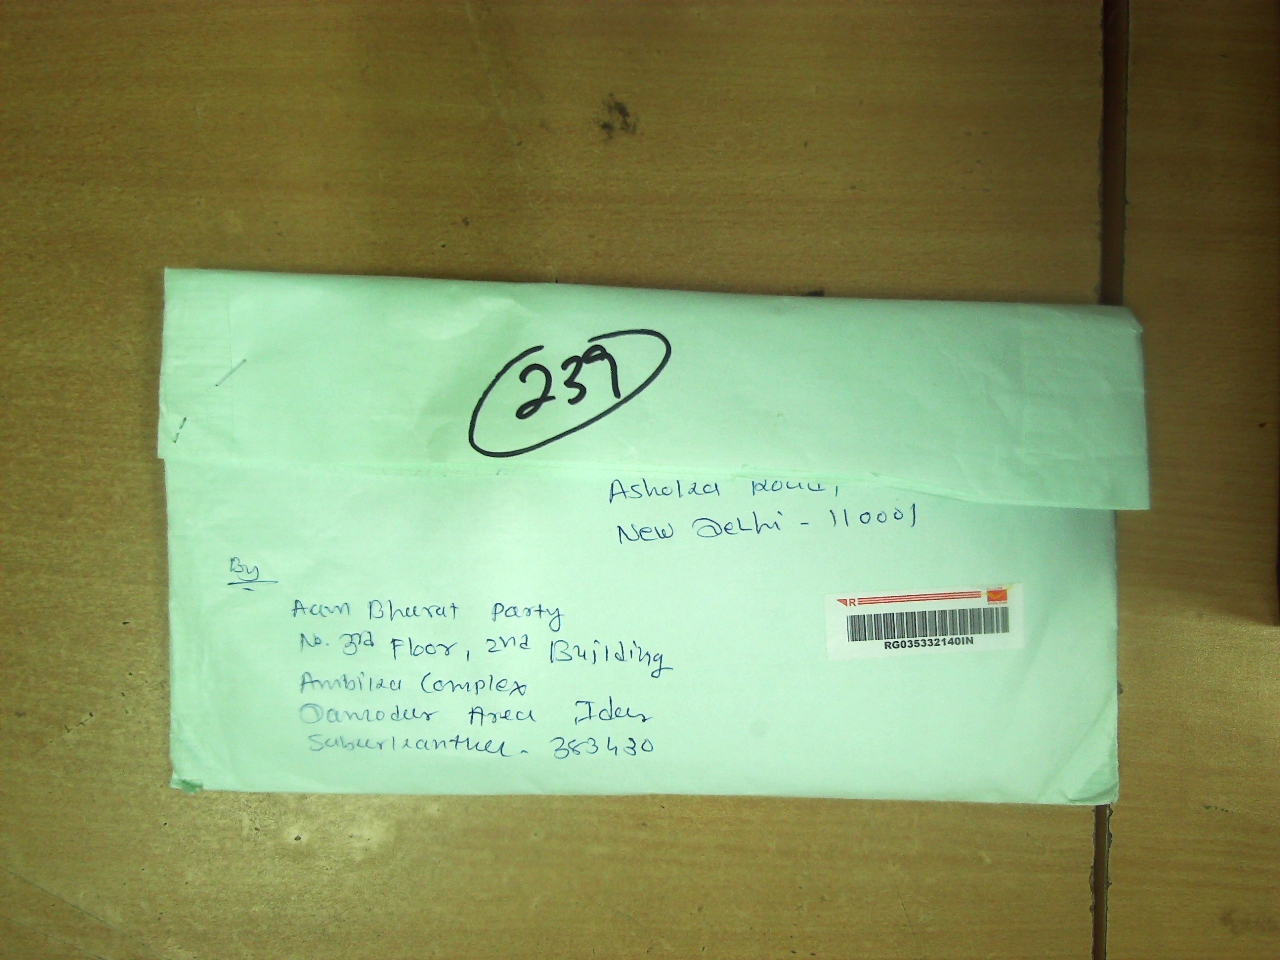 239
Ashoka Road,
New Delhi - 110001
By
Aam Bharat Party
No. 3rd Floor, 2nd Building
Ambika Complex
Damodar Area Idar
Sabarkantha - 383430
R
RG035332140IN